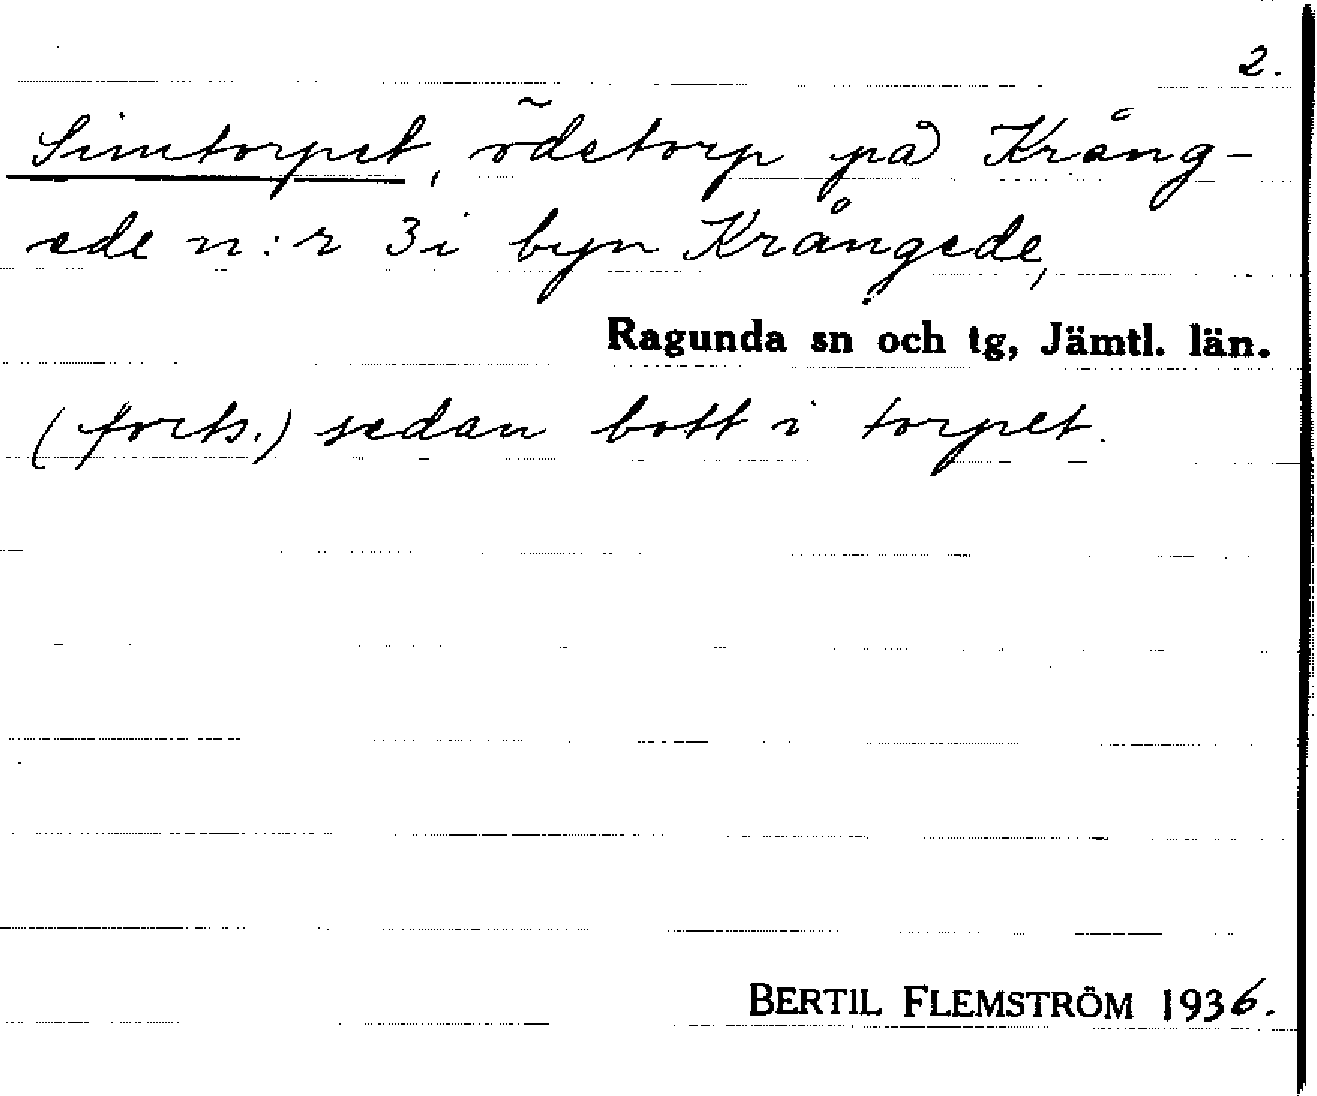 2.
Simtorpet, ödetorp på Krång-
ede n:r 3 i byn Krångede,
Ragunda sn och tg, Jämtl. län.
(forts.) sedan bott i torpet.
BERTIL FLEMSTRÖM 1936.